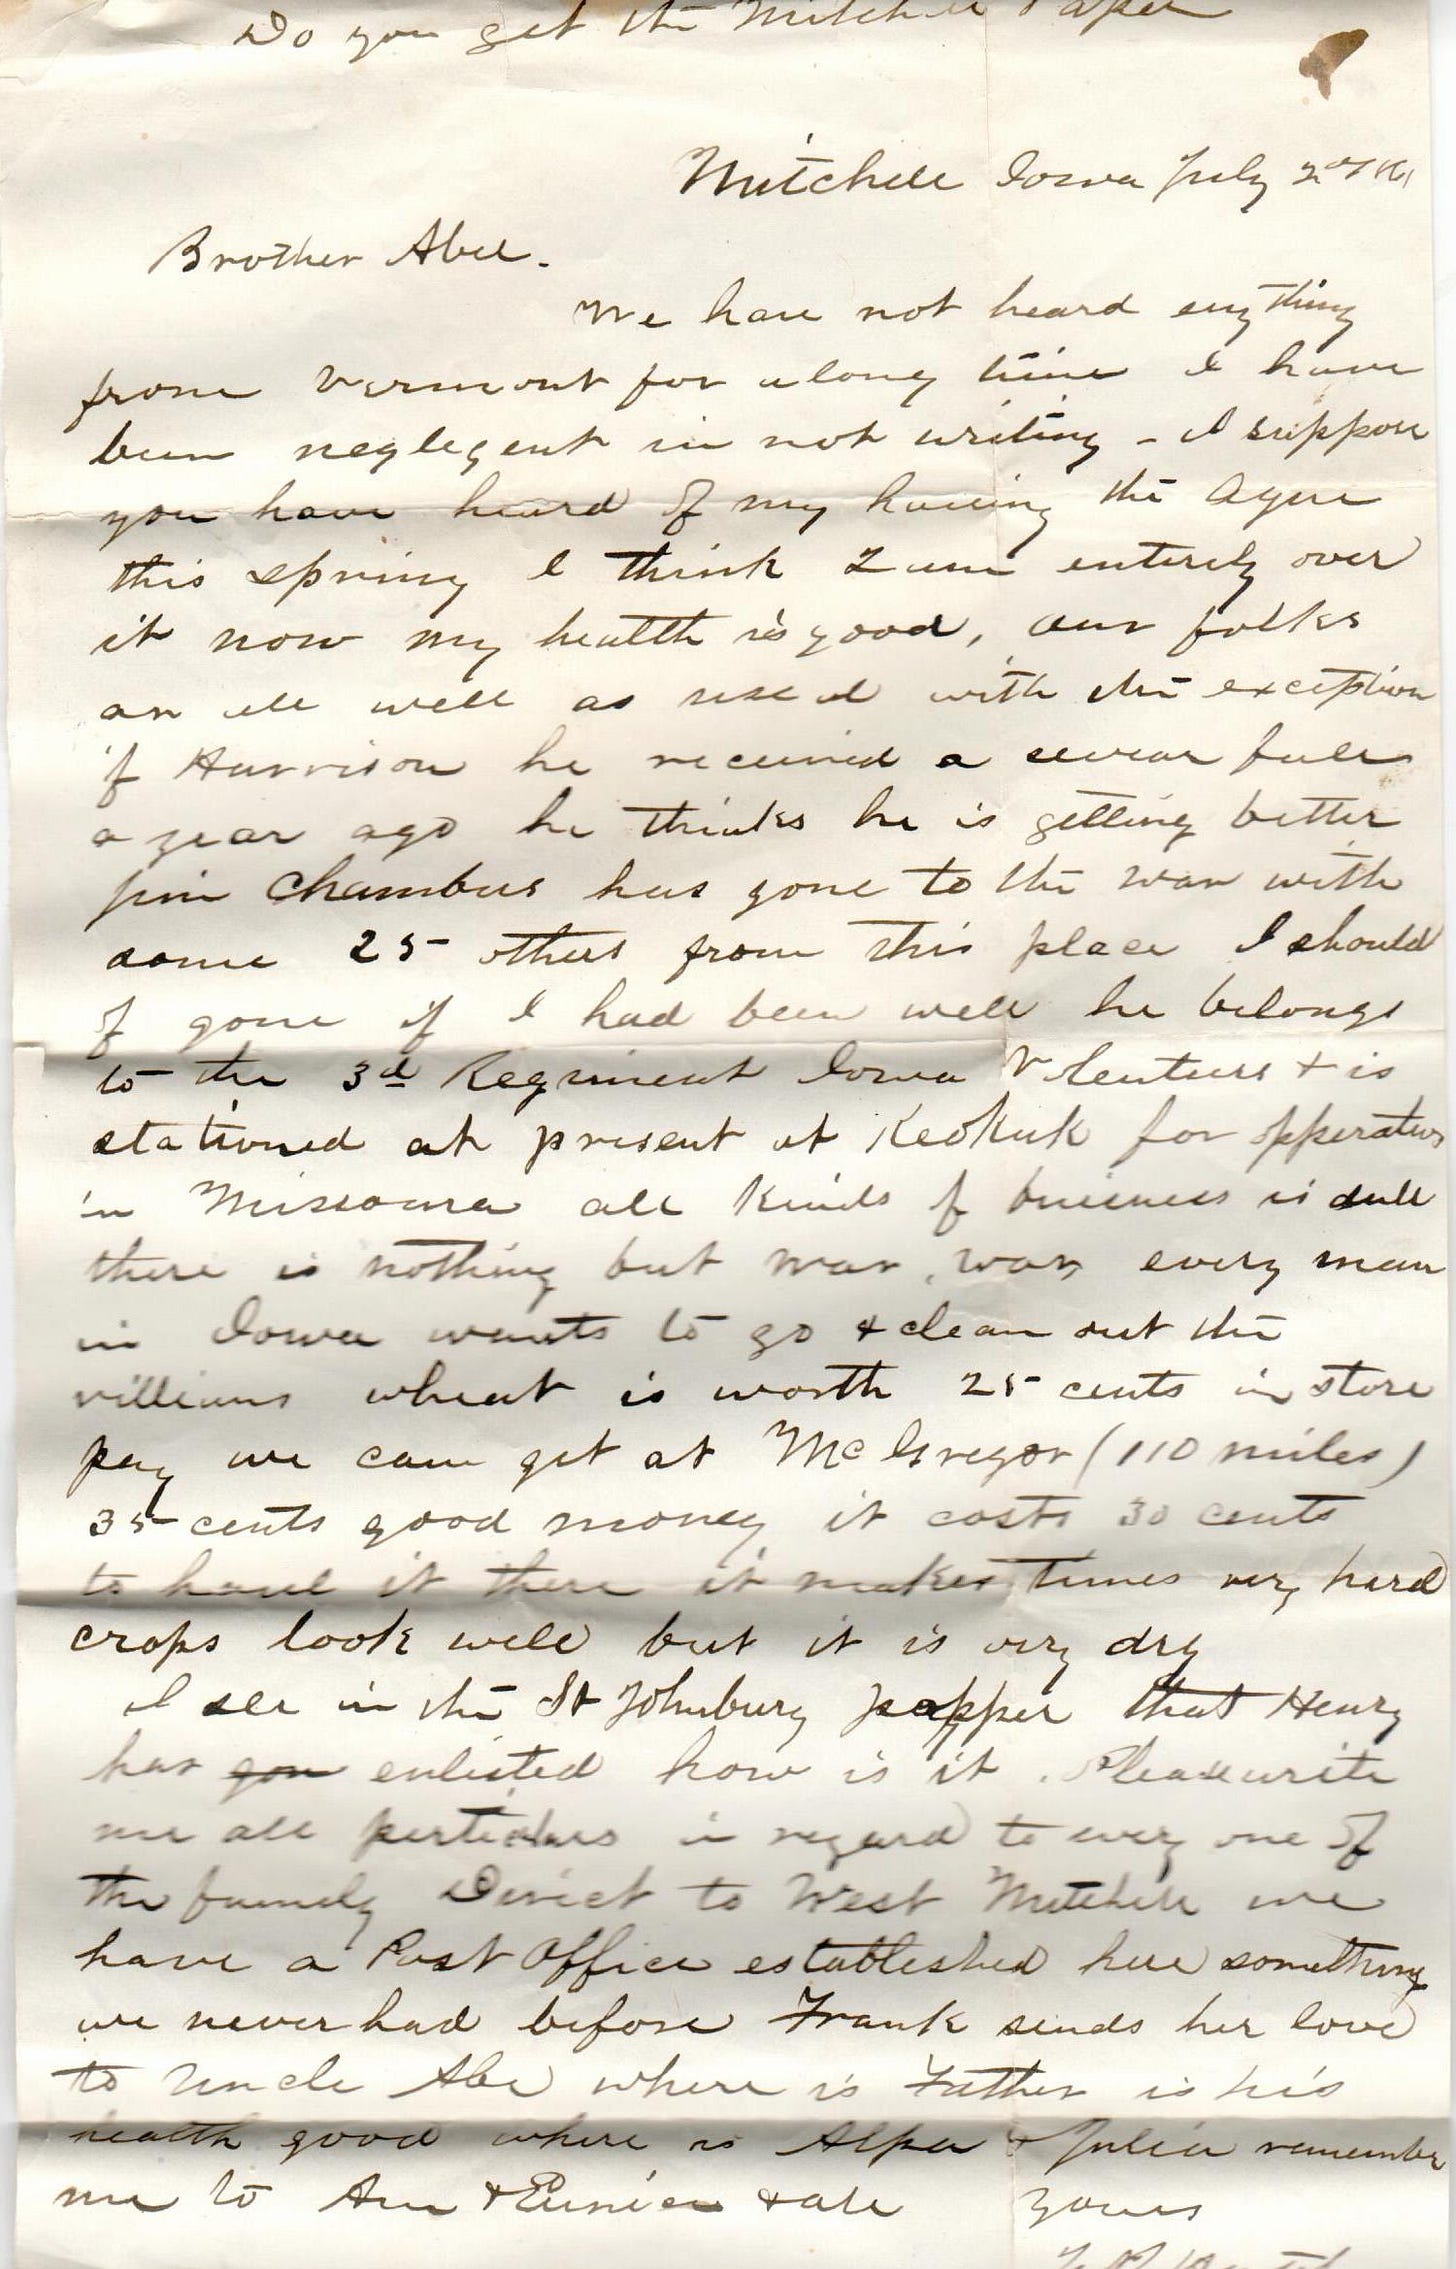 Do you get the Mitchell Paper
Mitchell Iowa July 2nd 1861
Brother Abel.
We have not heard enything
from Vermont for a long time I have
been neglegent in not writing - I suppose
you have heard of my haveing the Ague
this spring I think I am entirely over
it now my health is good, our folks
are all well as useal with the exception
of Harrison he received a sevear fall
a year ago he thinks he is getting better
Jim Chambers has gone to the war with
some 25 others from this place I should
of gone if I had been well he belongs
to the 3d Regiment Iowa Volenteers + is
stationed at present at Keokuk for opperations
in Missoura all kinds of buisness is dull
there is nothing but war, war, every man
in Iowa wants to go + clean out the
villians wheat is worth 25 cents in store
pay we can get at McGregor (110 miles)
35 cents good money it costs 30 cents
to haul it there it makes times very hard
crops look well but it is very dry
I see in the St Johnbury papper that Henry
has gon enlisted how is it. Please write
me all perticulars in regard to every one of
the family Direct to West Mitchell we
have a Post Office established here something
we never had before Frank sends her love
to Uncle Abe where is Father is his
health good where is Alpa + Julia remember
me to Ann + Eunice + all yours